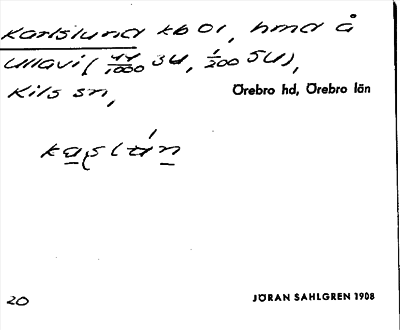 Karlslund kb 01, hmd å
Ullavi (44/1000 3U, 1/200 5U),
Kils sn,
Örebro hd, Örebro län
20
JÖRAN SAHLGREN 1908